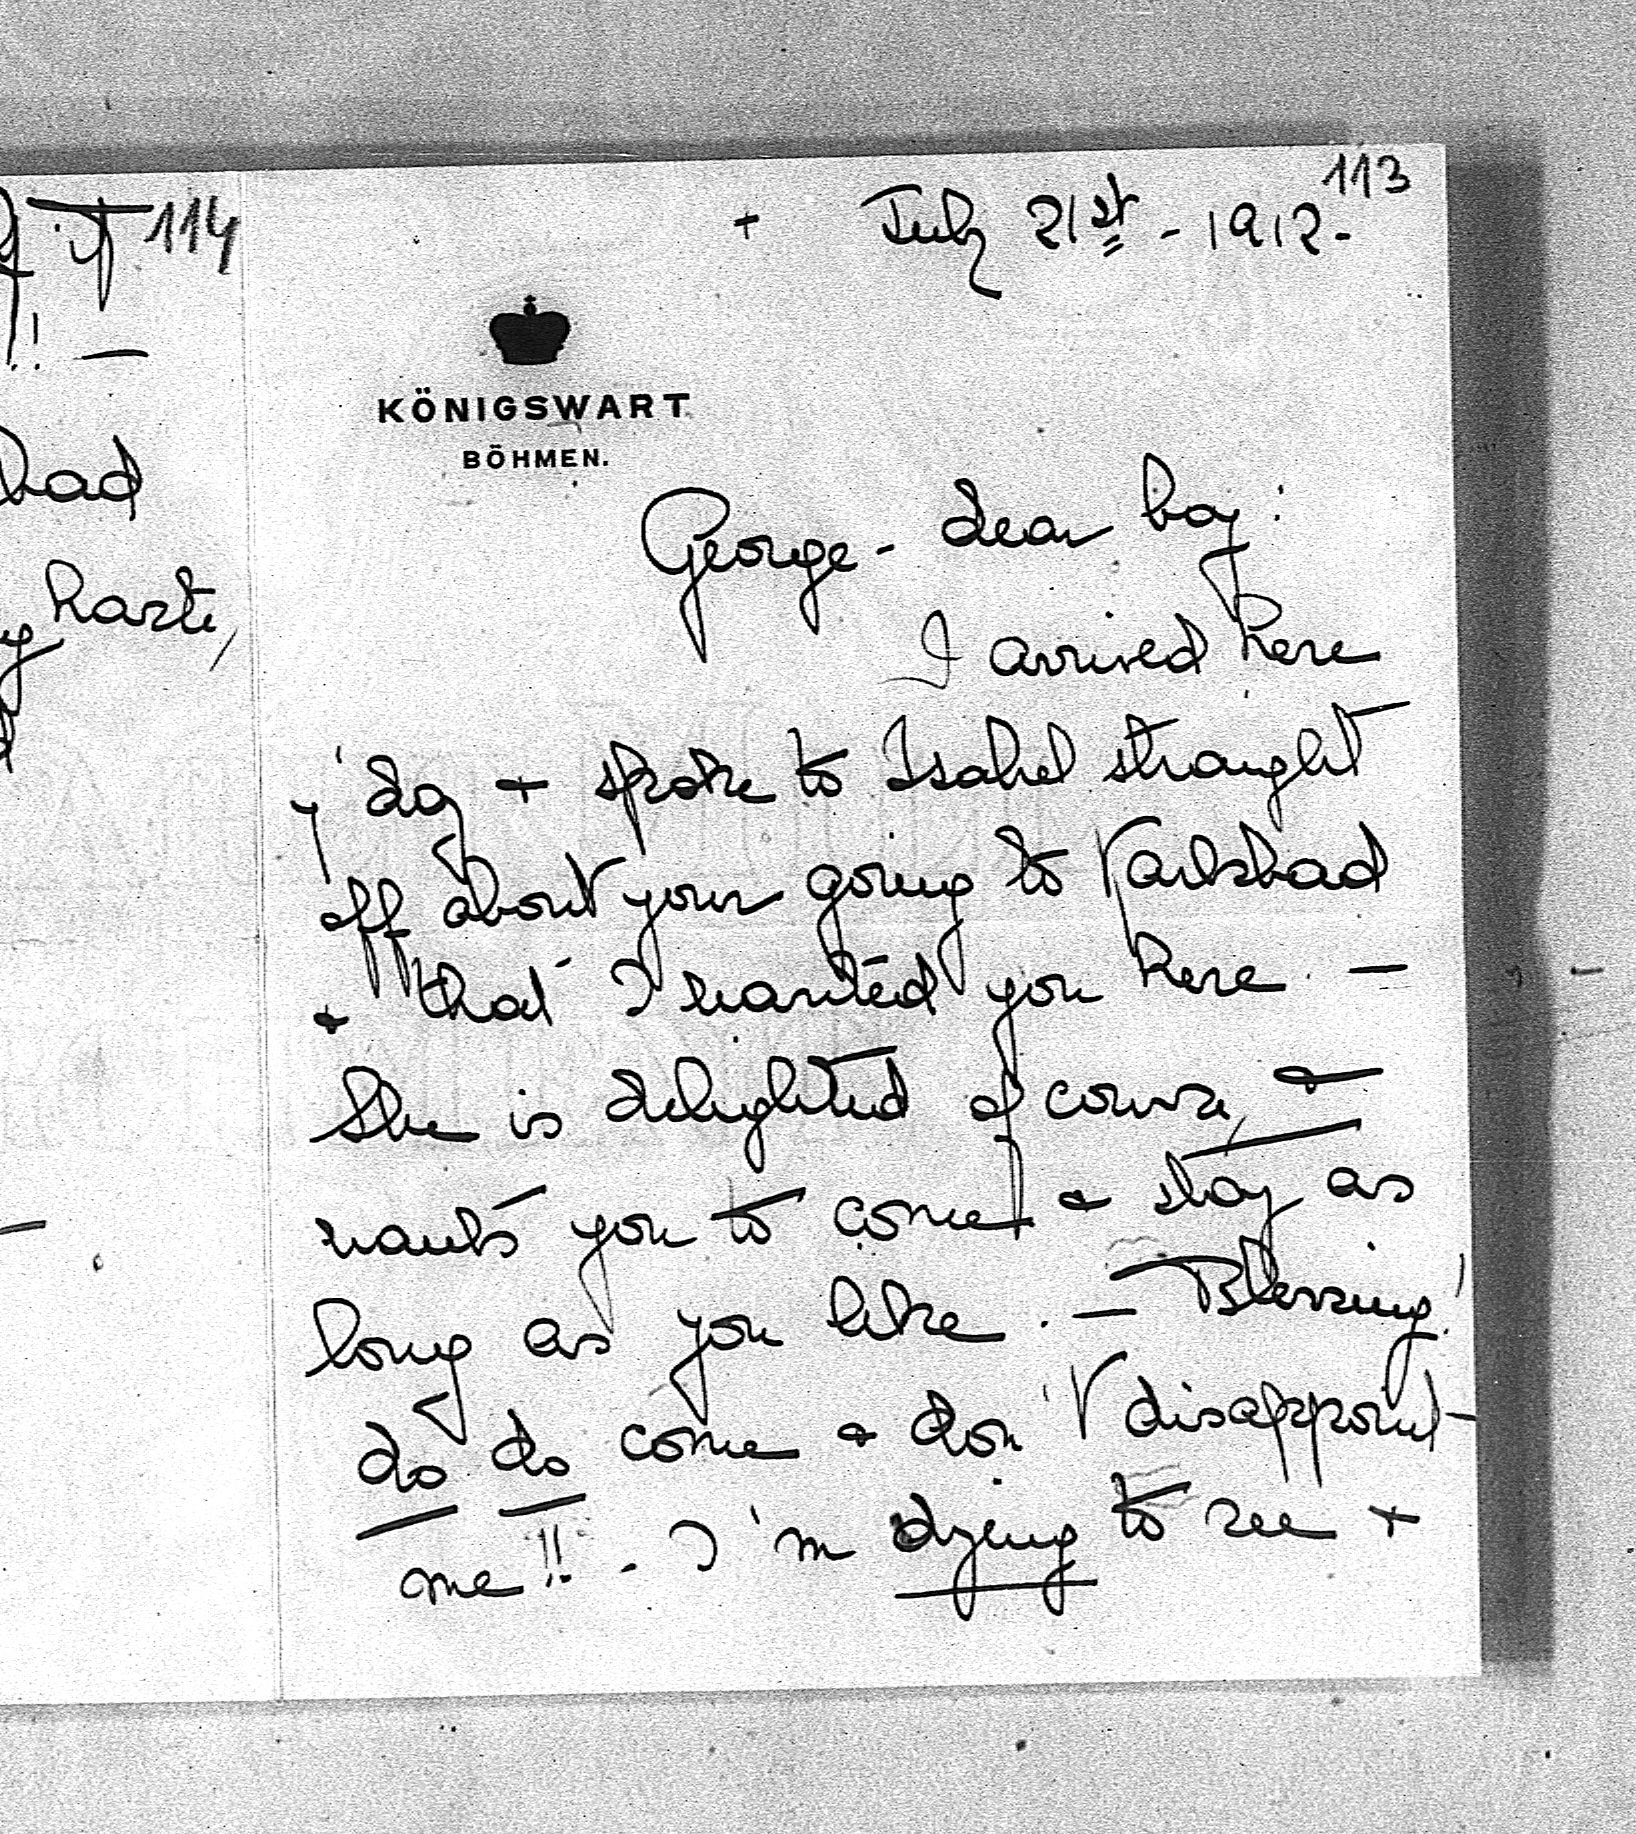 113
+ July 21st - 1912 -
KÖNIGSWART
BÖHMEN.
George - dear boy:
I arrived here
y'day + spoke to Isabel straight
off about your going to Karlsbad
+ that I wanted you here. —
She is delighted of course, +
wants you to come + stay as
long as you like. — Blessing!
do do come + don't disappoint
me!! - I'm dying to see +
114
!! —
had
haste,